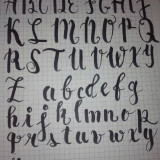 A B C D E F G H I J
K L M N O P Q
R S T U V W X Y
Z a b c d e f g
h i j k l m n o p
q r s t u v w x y